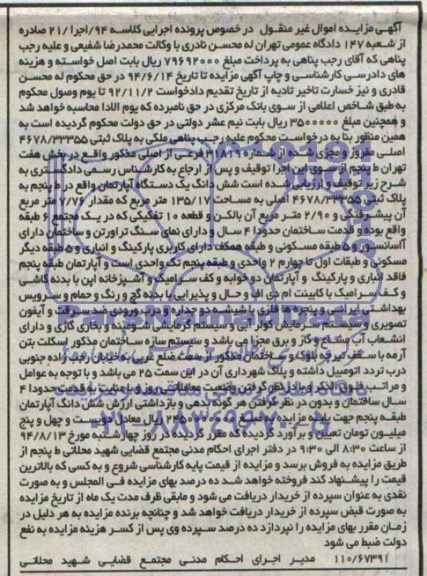 آگهی مزایده اموال غیر منقول در خصوص پرونده اجرایی کلاسه ۹۴/اجرا/۲۱ صادره
از شعبه ۱۴۷ دادگاه عمومی تهران له محسن نادری با وکالت محمدرضا شفیعی و علیه رجب
پناهی که آقای رجب پناهی به پرداخت مبلغ ۷۹۶۹۲۰۰۰ ریال بابت اصل خواسته و هزینه
های دادرسی کارشناسی و چاپ آگهی مزایده تا تاریخ ۹۴/۶/۱۴ در حق محکوم له محسن
قادری و نیز خسارت تاخیر تادیه از تاریخ تقدیم دادخواست ۹۲/۱۱/۲ تا یوم وصول محکوم
به طبق شاخص اعلامی از سوی بانک مرکزی در حق نامبرده که یوم الادا محاسبه خواهد شد
و همچنین مبلغ ۳۵۰۰۰۰۰ ریال بابت نیم عشر دولتی در حق دولت محکوم گردیده است به
همین منظور بنا به درخواست محکوم علیه رجب پناهی ملکی به پلاک ثبتی ۴۶۷۸/۳۳۳۵۵
اصلی مفروز و مجزی شده از شماره ۳۸۱۹ فرعی از اصلی مذکور واقع در بخش هفت
تهران ط پنجم از سوی این اجرا توقیف و پس از ارجاع به کارشناس رسمی دادگستری به
شرح زیر توقیف و ارزیابی شده است شش دانگ یک دستگاه آپارتمان واقع در ط پنجم به
پلاک ثبتی ۴۶۷۸/۳۳۳۵۵ اصلی به مساحت ۱۳۵/۱۷ متر مربع که مقدار متر مربع
آن پیشرفتگی و ۲/۹۰ متر مربع آن بالکن و قطعه ۱۰ تفکیکی که در یک مجتمع ۶ طبقه
واقع بوده و قدمت ساختمان حدودا ۴ سال و دارای نمای سنگ تراورتن و ساختمان دارای
آسانسور و ۵ طبقه مسکونی و طبقه همکف دارای کاربری پارکینگ و انباری و ۵ طبقه دیگر
مسکونی و طبقات اول تا چهارم ۲ واحدی و طبقه پنجم تک واحدی است و آپارتمان طبقه پنجم
فاقد انباری و پارکینگ و آپارتمان دو خوابه و کف سرامیک و آشپزخانه اپن با بدنه کاشی
و کف سرامیک با کابینت ام دی اف و حال و پذیرایی با بدنه گچ و رنگ و حمام و سرویس
بهداشتی ایرانی و پنجره ها فلزی با شیشه دو جداره و درب ورودی ضد سرقت و آیفون
تصویری و سیستم سرمایش کولر آبی و سیستم گرمایش شومینه و بخاری گازی و دارای
انشعاب آب مشاع و گاز و برق مجزا می باشد و سیستم سازه ساختمان مذکور اسکلت بتن
آرمه با سقف تیرچه بلوک و ساختمان مذکور از سمت ضلع غربی به خیابان رجب زاده جنوبی
درب تردد اتومبیل داشته و پلاک شهرداری آن در این سمت ۲۵ می باشد و با توجه به عوامل
و مراتب فوق الذکر و با در نظر گرفتن وضعیت معاملاتی روز و با عنایت به قدمت حدودا ۴
سال ساختمان و بدون در نظر گرفتن هر گونه بدهی و بازداشتی ارزش شش دانگ آپارتمان
طبقه پنجم جهت پایه مزایده به مبلغ ریال معادل دویست و چهل و پنج
میلیون تومان تعیین و برآورد گردیده که مقرر گردیده در روز چهارشنبه مورخ ۹۴/۸/۱۳
از ساعت ۸:۳۰ الی ۹:۳۰ در دفتر اجرای احکام مدنی مجتمع قضایی شهید محلاتی ط پنجم از
طریق مزایده به فروش برسد و مزایده از قیمت پایه کارشناسی شروع و به کسی که بالاترین
قیمت را پیشنهاد کند فروخته خواهد شد ده درصد بهای مزایده فی المجلس و به صورت
نقدی به عنوان سپرده از خریدار دریافت می شود و مابقی ظرف مدت یک ماه از تاریخ مزایده
به صورت قبض سپرده از خریدار دریافت خواهد شد و چنانچه برنده مزایده به هر دلیل در
زمان مقرر بهای مزایده را نپردازد ده درصد سپرده وی پس از کسر هزینه مزایده به نفع
دولت ضبط می شود
۱۱۰/۶۷۳۹۱ مدیر اجرای احکام مدنی مجتمع قضایی شهید محلاتی